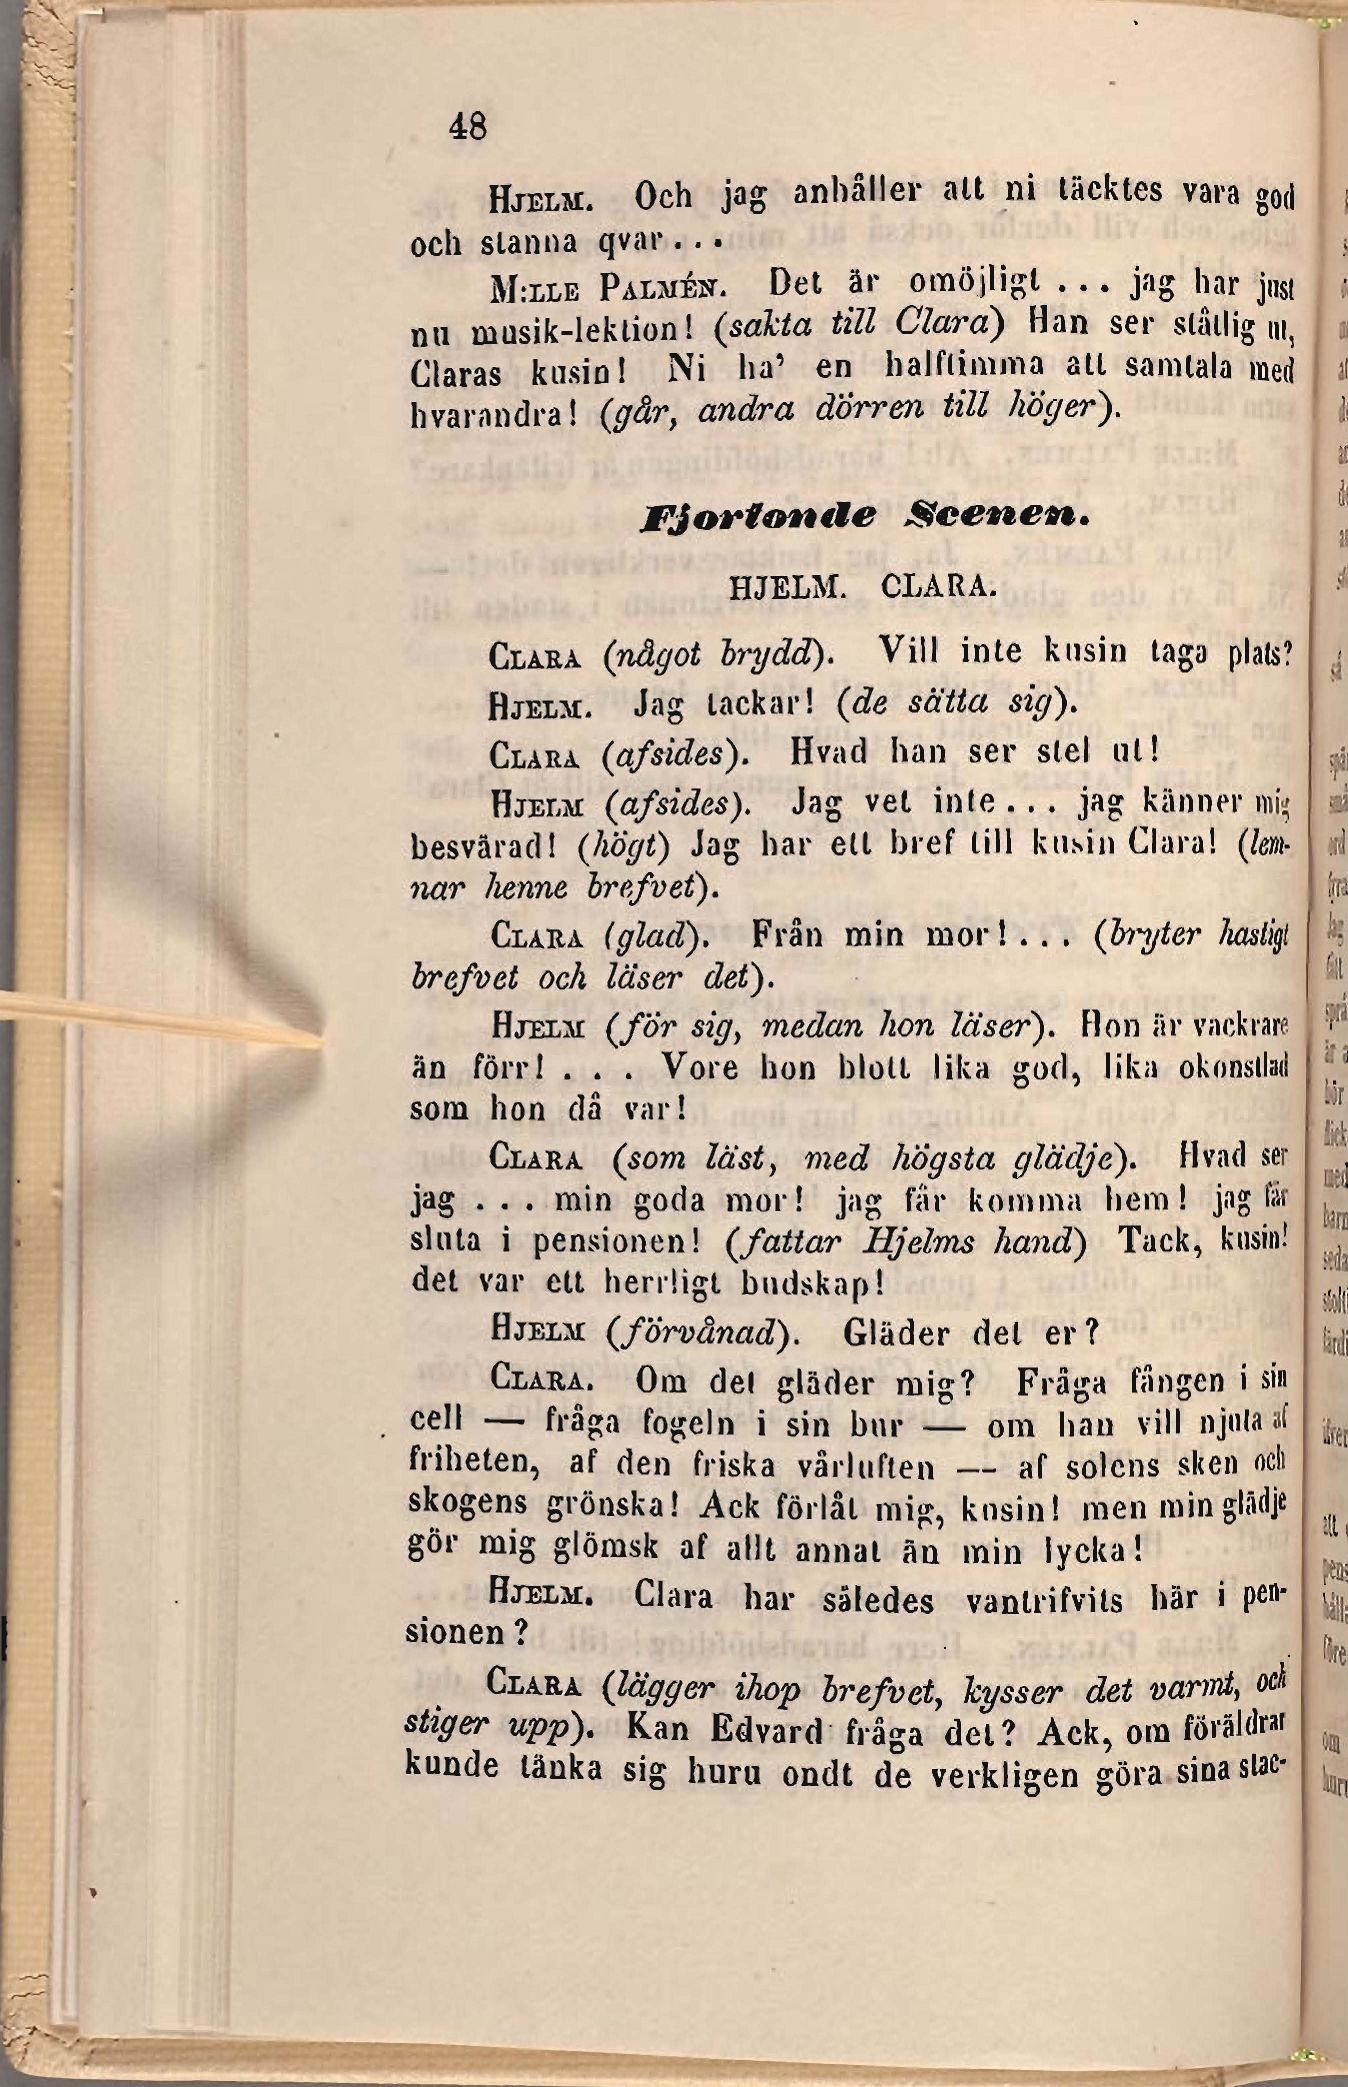 48
HJELM. Och jag anhåller att ni täcktes vara god
och stanna qvar...
M:LLE PALMÉN. Det är omöjligt ... jag har just
nu musik-lektion! (sakta till Clara) Han ser ståtlig ut,
Claras kusin! Ni ha' en halftimma att samtala med
hvarandra! (går, andra dörren till höger).
Fjortonde Scenen.
HJELM. CLARA.
CLARA (något brydd). Vill inte kusin taga plats?
HJELM. Jag tackar! (de sätta sig).
CLARA (afsides). Hvad han ser stel ut!
HJELM (afsides). Jag vet inte... jag känner mig
besvärad! (högt) Jag har ett bref till kusin Clara! (lem-
nar henne brefvet).
CLARA (glad). Från min mor!... (bryter hastigt
brefvet och läser det).
HJELM (för sig, medan hon läser). Hon är vackrare
än förr! ... Vore hon blott lika god, lika okonstlad
som hon då var!
CLARA (som läst, med högsta glädje). Hvad ser
jag ... min goda mor! jag får komma hem! jag får
sluta i pensionen! (fattar Hjelms hand) Tack, kusin!
det var ett herrligt budskap!
HJELM (förvånad). Gläder det er?
CLARA. Om det gläder mig? Fråga fången i sin
cell — fråga fogeln i sin bur — om han vill njuta af
friheten, af den friska vårluften — af solens sken och
skogens grönska! Ack förlåt mig, kusin! men min glädje
gör mig glömsk af allt annat än min lycka!
HJELM. Clara har således vantrifvits här i pen-
sionen?
CLARA (lägger ihop brefvet, kysser det varmt, och
stiger upp). Kan Edvard fråga det? Ack, om föräldrar
kunde tänka sig huru ondt de verkligen göra sina stac-